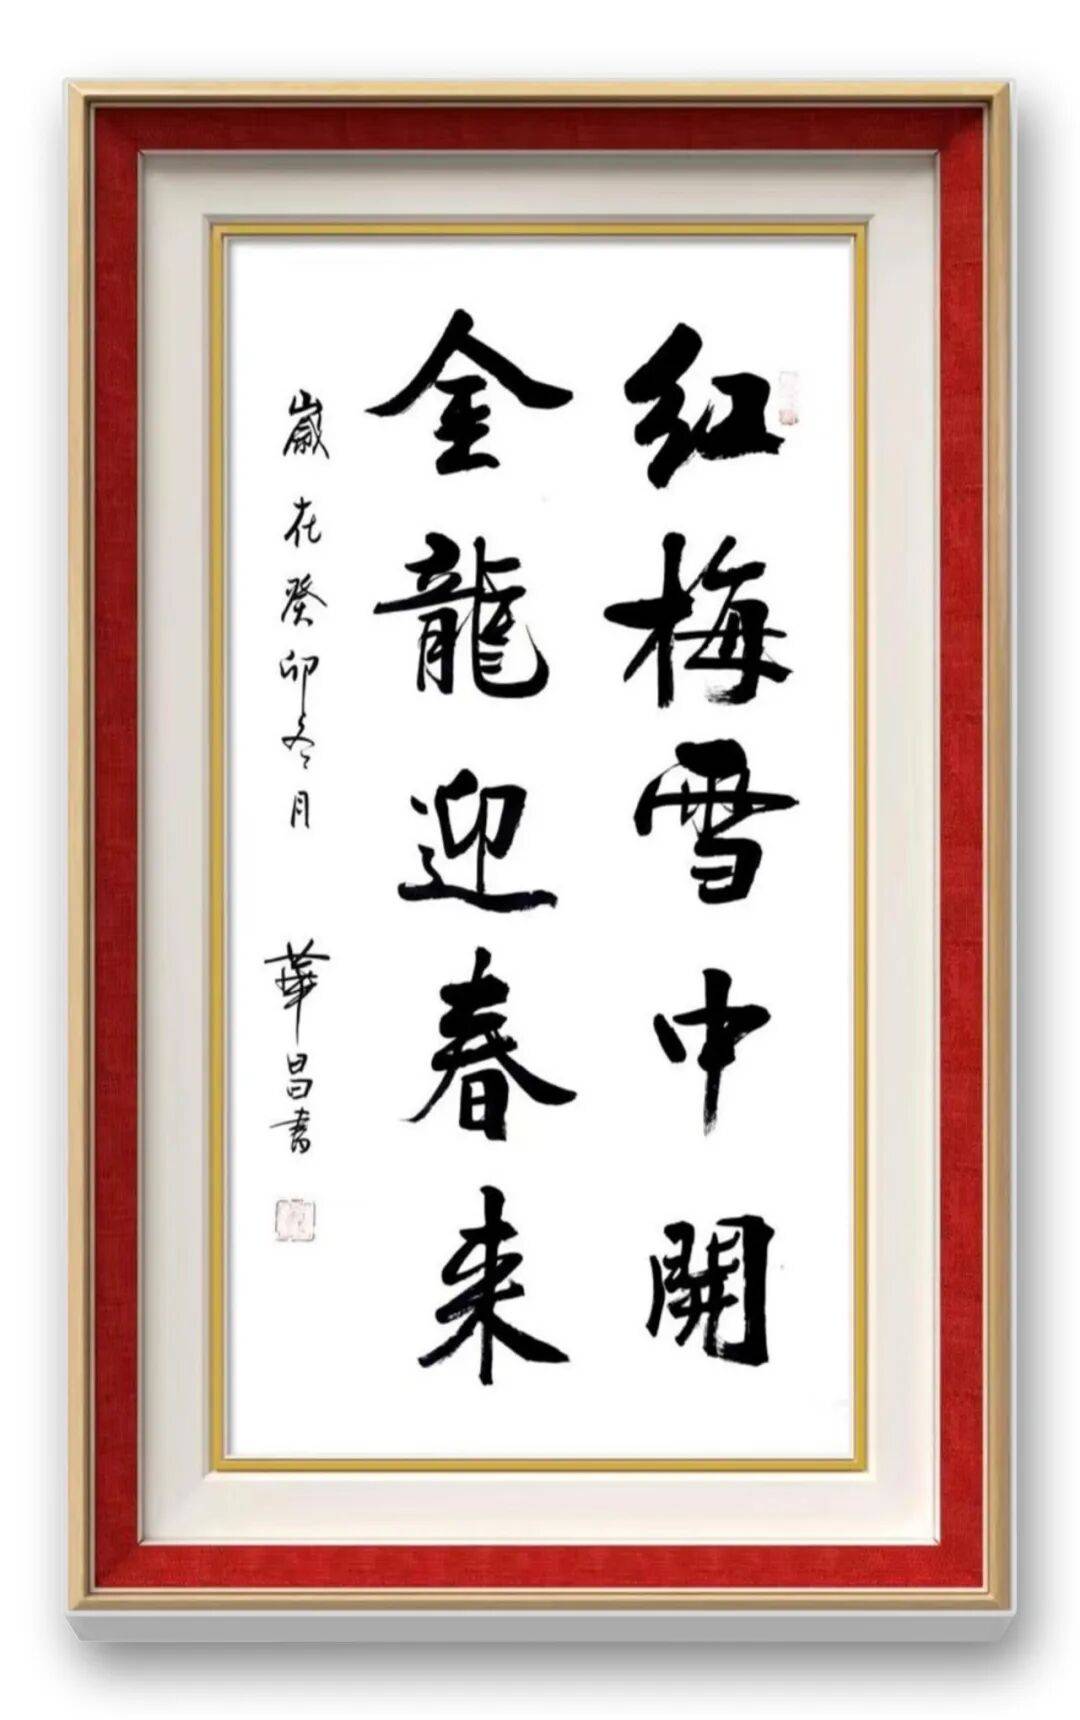 红梅雪中開
金龍迎春来
歲在癸卯冬月
華昌書